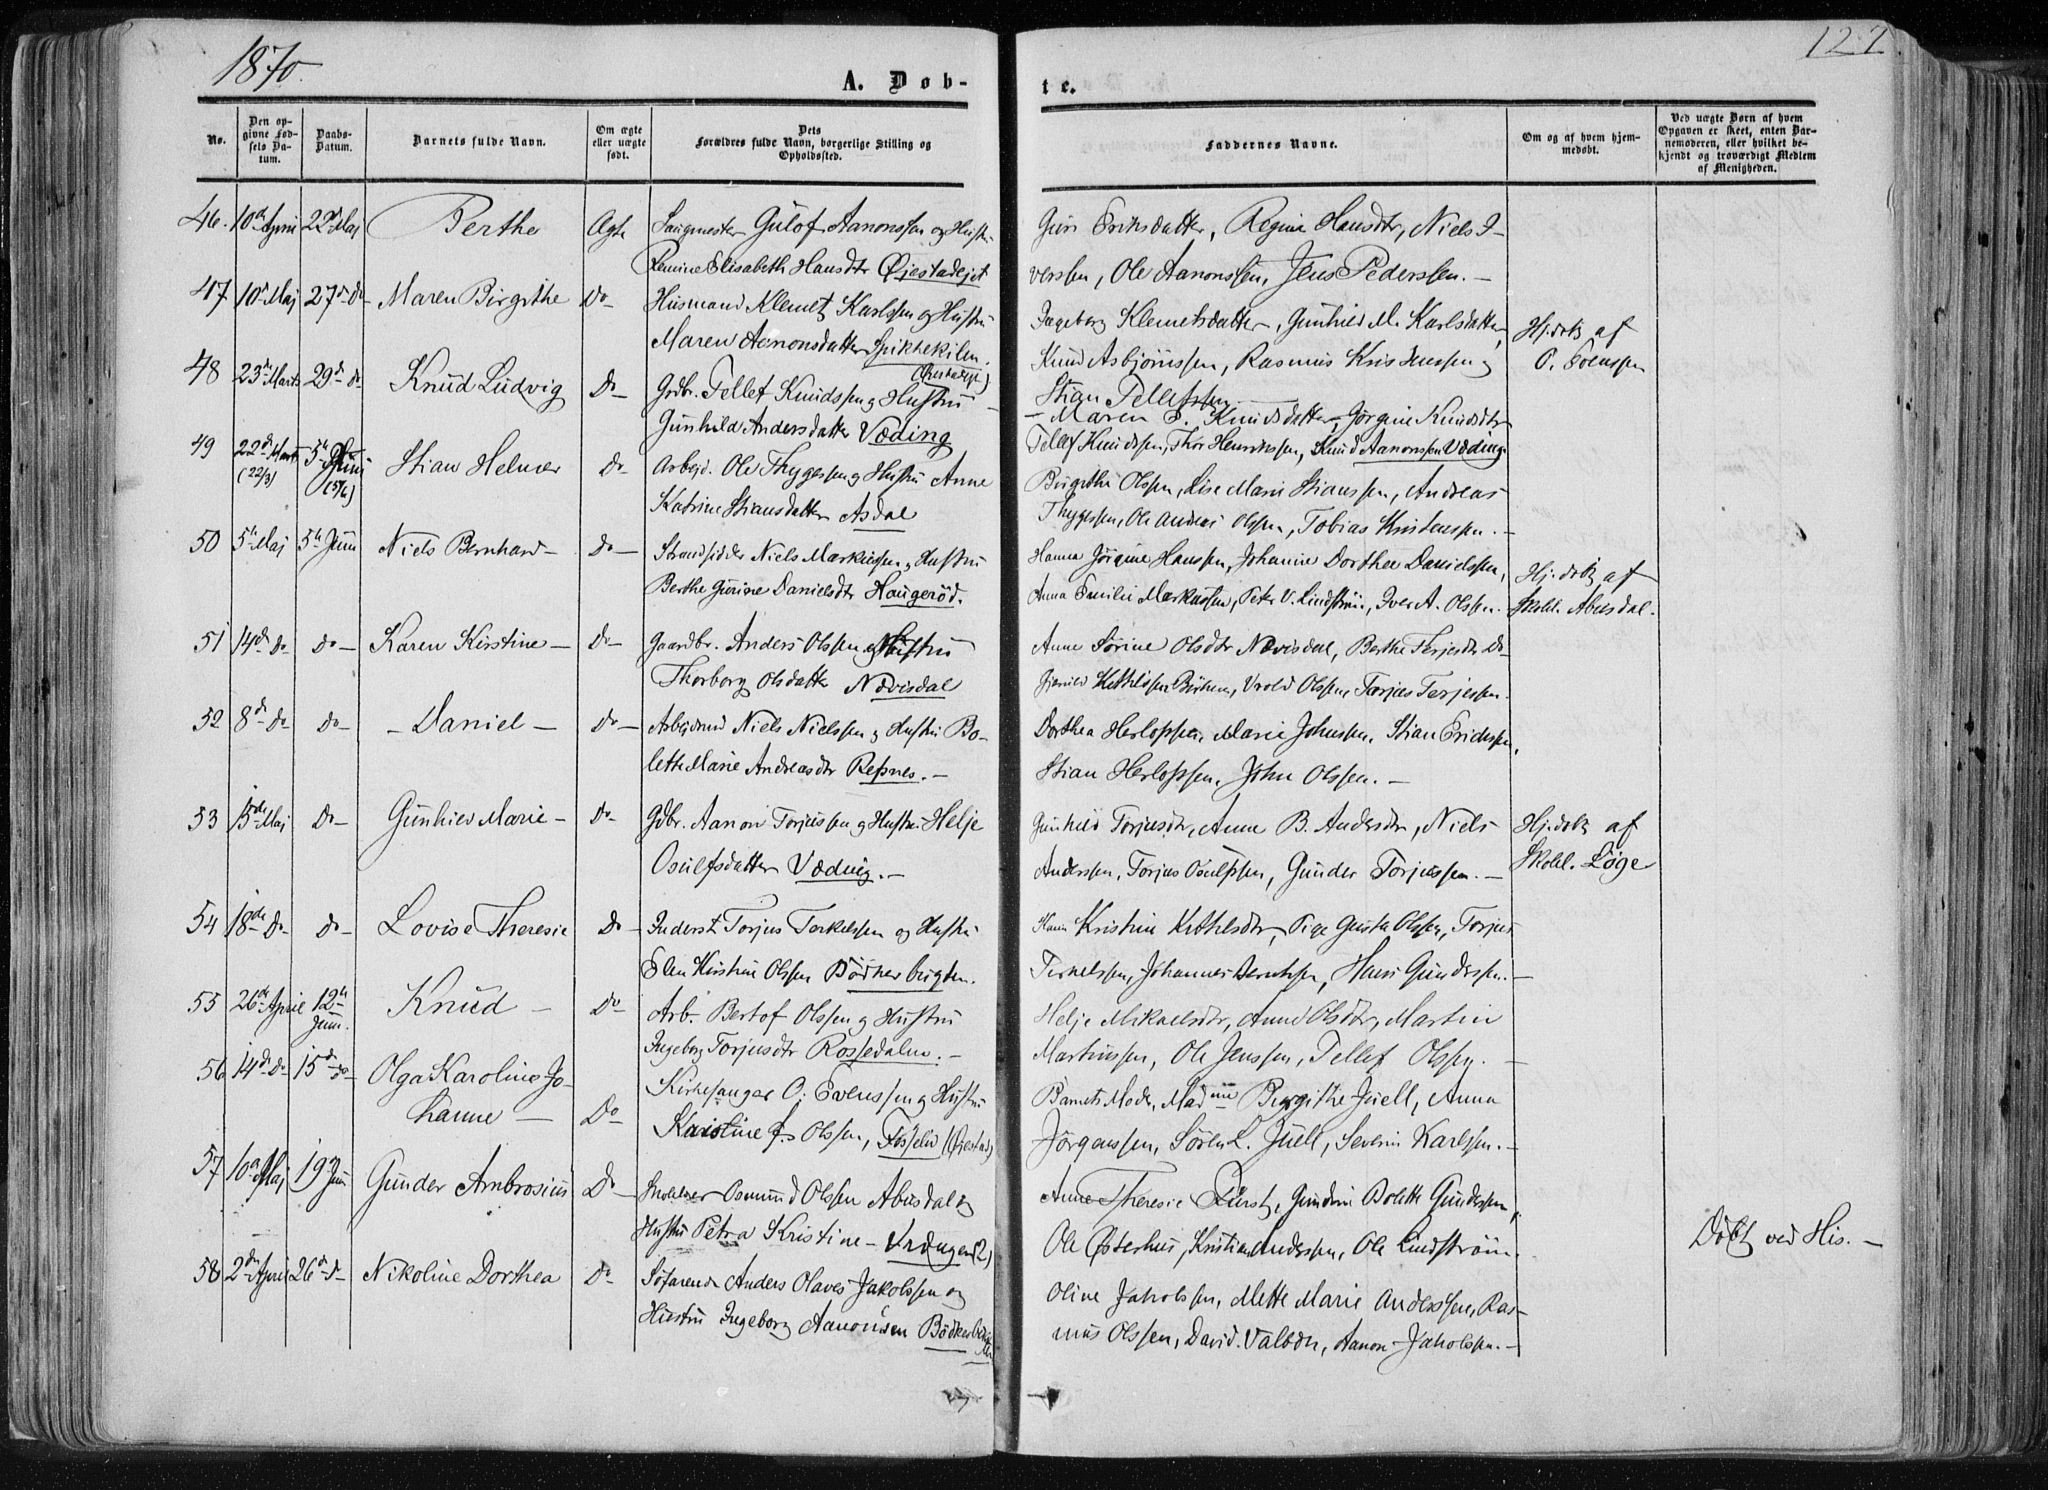 1870.
127
A. Døb-
te.
No.
Den op-
givne Fød-
sels Da-
tum.
Daabs-
Datum.
Barnets fulde Navn.
Om ægte
eller uægte
født.
Dets
Forældres fulde Navn, borgerlige Stilling og
Opholdssted.
Faddernes Navne.
Om og af hvem hjem-
medøbt.
Ved uægte Børn af hvem
Opgaven er skeet, enten Bar-
nemoderen, eller hvilket be-
kjendt og troværdigt Medlem
af Menigheden.
46. 10de April 22de Maj Berthe Ægte Saugmester Gulof Aanonssen og Hustru
Elisabeth Hansdtr Øiestadejet
Guri Eriksdatter, Regine Hansdtr, Niels I-
verssen, Ole Aanonssen, Jens Pederssen. —
47 10de Maj 27de Do Maren Birgithe Do Husmand Klemet Karlssen og Hustru
Maren Aanonsdatter Spikkekilen.
Ingeborg Klemetsdatter, Gunhild M. Karlsdatter,
Knud Asbjørnssen, Rasmus Kristenssen og
Stian Tellefssen
Hj.døbt af
O. Evenssen
48 23de Marts 29de do Knud Ludvig Do Grdbr. Tellef Knudssen og Hustru
Gunhild Andersdatter Væding
Maren T. Knudsdatter, Jørgine Knudsdtr
Tellef Knudssen, Thor Henrikssen, Knud Aanonssen Væding.
49 22de Marts 5te Juni Stian Helmer Do Arbejd. Ole Thygessen og Hustru Anne
(22/3) (5/6)
Katrine Stiansdatter Asdal
Birgithe Olssen, Lise Marie Stianssen, Andreas
Thygessen, Ole Andreas Olssen, Tobias Kristenssen. —
50 5te Maj 5te Juni Niels Bernhard — Do — Strandsidder Niels Markussen og Hustru
Berthe Gurine Danielsdtr Haugerød.
Hanna Jørgine Hanssen, Johanne Dorthea Danielssen,
Anna Emilie Markussen, Peter V. Lindstrøm, Iver A. Olssen.
Hj.døbt af
Skoll. Abusdal.
51 14de Do Do — Karen Kirstine — Do — Gaardbr. Anders Olssen og Hustru
Thorborg Olsdatter Nævisdal
Anne Sørine Olsdtr Nævisdal, Berthe Terjesdtr Do
Kittelssen Vrold Olssen Tarjus Terjessen.
52 8de Do Do — Daniel — Do — Arbejdsmd Niels Nielssen og Hustru Bo-
lette Marie Andreasdtr Resnes. —
Dorthea Herlofssen, Marie Johnssen, Stian Erikssen,
Stian Herlofssen, John Olssen. —
53 15de Maj Do — Gunhild Marie — Do Gdbr. Aanon Torjussen og Hustru Helje
Osulfsdatter Væding. —
Gunhild Torjusdtr, Anne B. Andersdtr, Niels
Anderssen, Torjus Osulfssen, Gunder Torjussen. —
Hj.døbt af
Skoll. Løge
54 18de Do Do — Lovise Theresie Do Inderst Torjus Terkelssen og Hustru
Elen Kirstine Olssen Bødkerbugten.
Kristine Kittelsdtr, Pige Gusta Olssen, Torjus
Terkelssen, Johannes Berntssen, Hans Gunderssen. —
55 26de April 12te Juni. Knud — Do Arb. Bertof Olssen og Hustru
Ingeborg Torjusdtr Rossedalen. —
Helje Mikaelsdtr, Anne Olsdtr, Martin
Martinssen, Ole Jenssen, Tellef Olssen. —
56 14de Do 15de do Olga Karoline Jo-
hanne — Do Kirkesanger O. Evenssen og Hustru
Kristine J. Olssen, Fosselid (Øiestad)
Barnets Moder, Madme Birgithe Juell, Anna
Jørgenssen, Søren L. Juell, Severin Karlssen. —
57 10de Maj 19de Juni Gunder Ambrosius Do — Skolelærer Osmund Olssen Abusdal og
Hustru Petra Kristine — Vrængen (2)
Anne Theresie Fürst, Gundine Bolette Gunderssen,
Ole Østerhus, Kristian Anderssen, Ole Lindstrøm.
Døbt ved His. —
58 2de April 26de do Nikoline Dorthea Do Søfarende Anders Olaves Jakobssen og
Hustru Ingeborg Aanonssen Bødkerbugten
Oline Jakobssen, Mette Marie Anderssen, Ras-
mus Olssen, David Valbør, Aanon Jakobssen. —